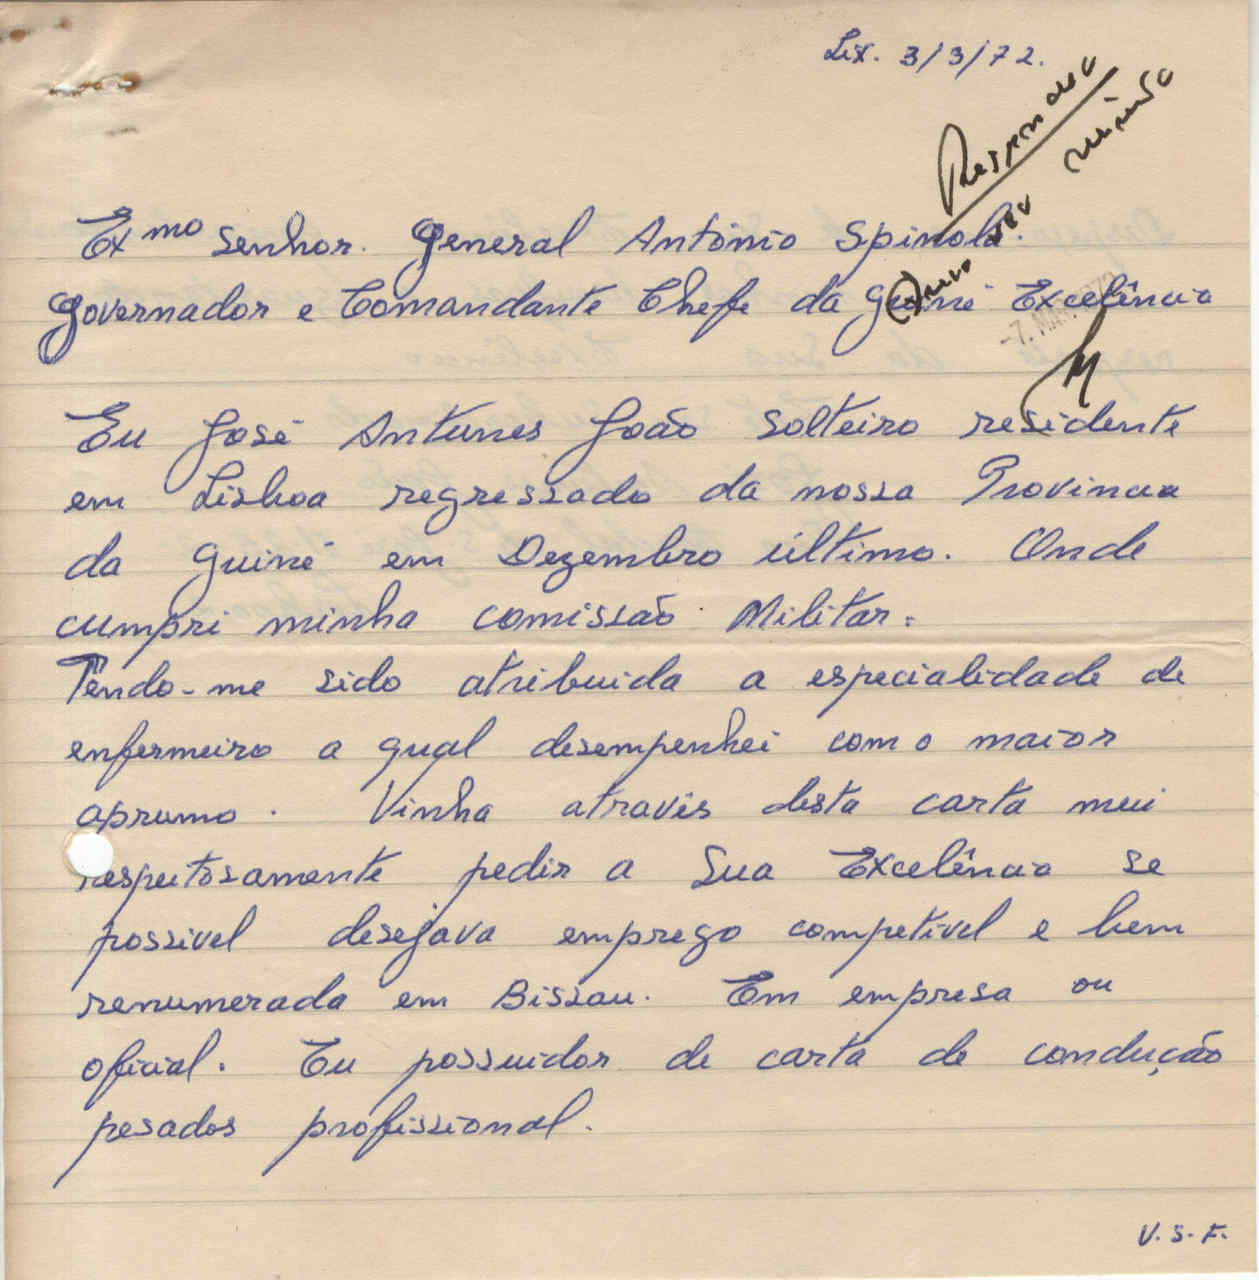 Lix. 3/3/72.
Exmo Senhor. General António Spinola.
Governador e Comandante Chefe da Guiné Excelência
-7. MAR. 1972
Eu José Antunes João Solteiro residente
em Lisboa regressado da nossa Provincia
da Guiné em Dezembro último. Onde
cumpri minha comissão Militar.
Tendo-me sido atribuida a especialidade de
enfermeiro a qual desempenhei com o maior
aprumo. Vinha através desta carta mui
respeitosamente pedir a Sua Excelência se
possivel desejava emprego competivel e bem
renumerada em Bissau. Em empresa ou
oficial. Eu possuidor de carta de condução
pesados profissional.
V.S.F.